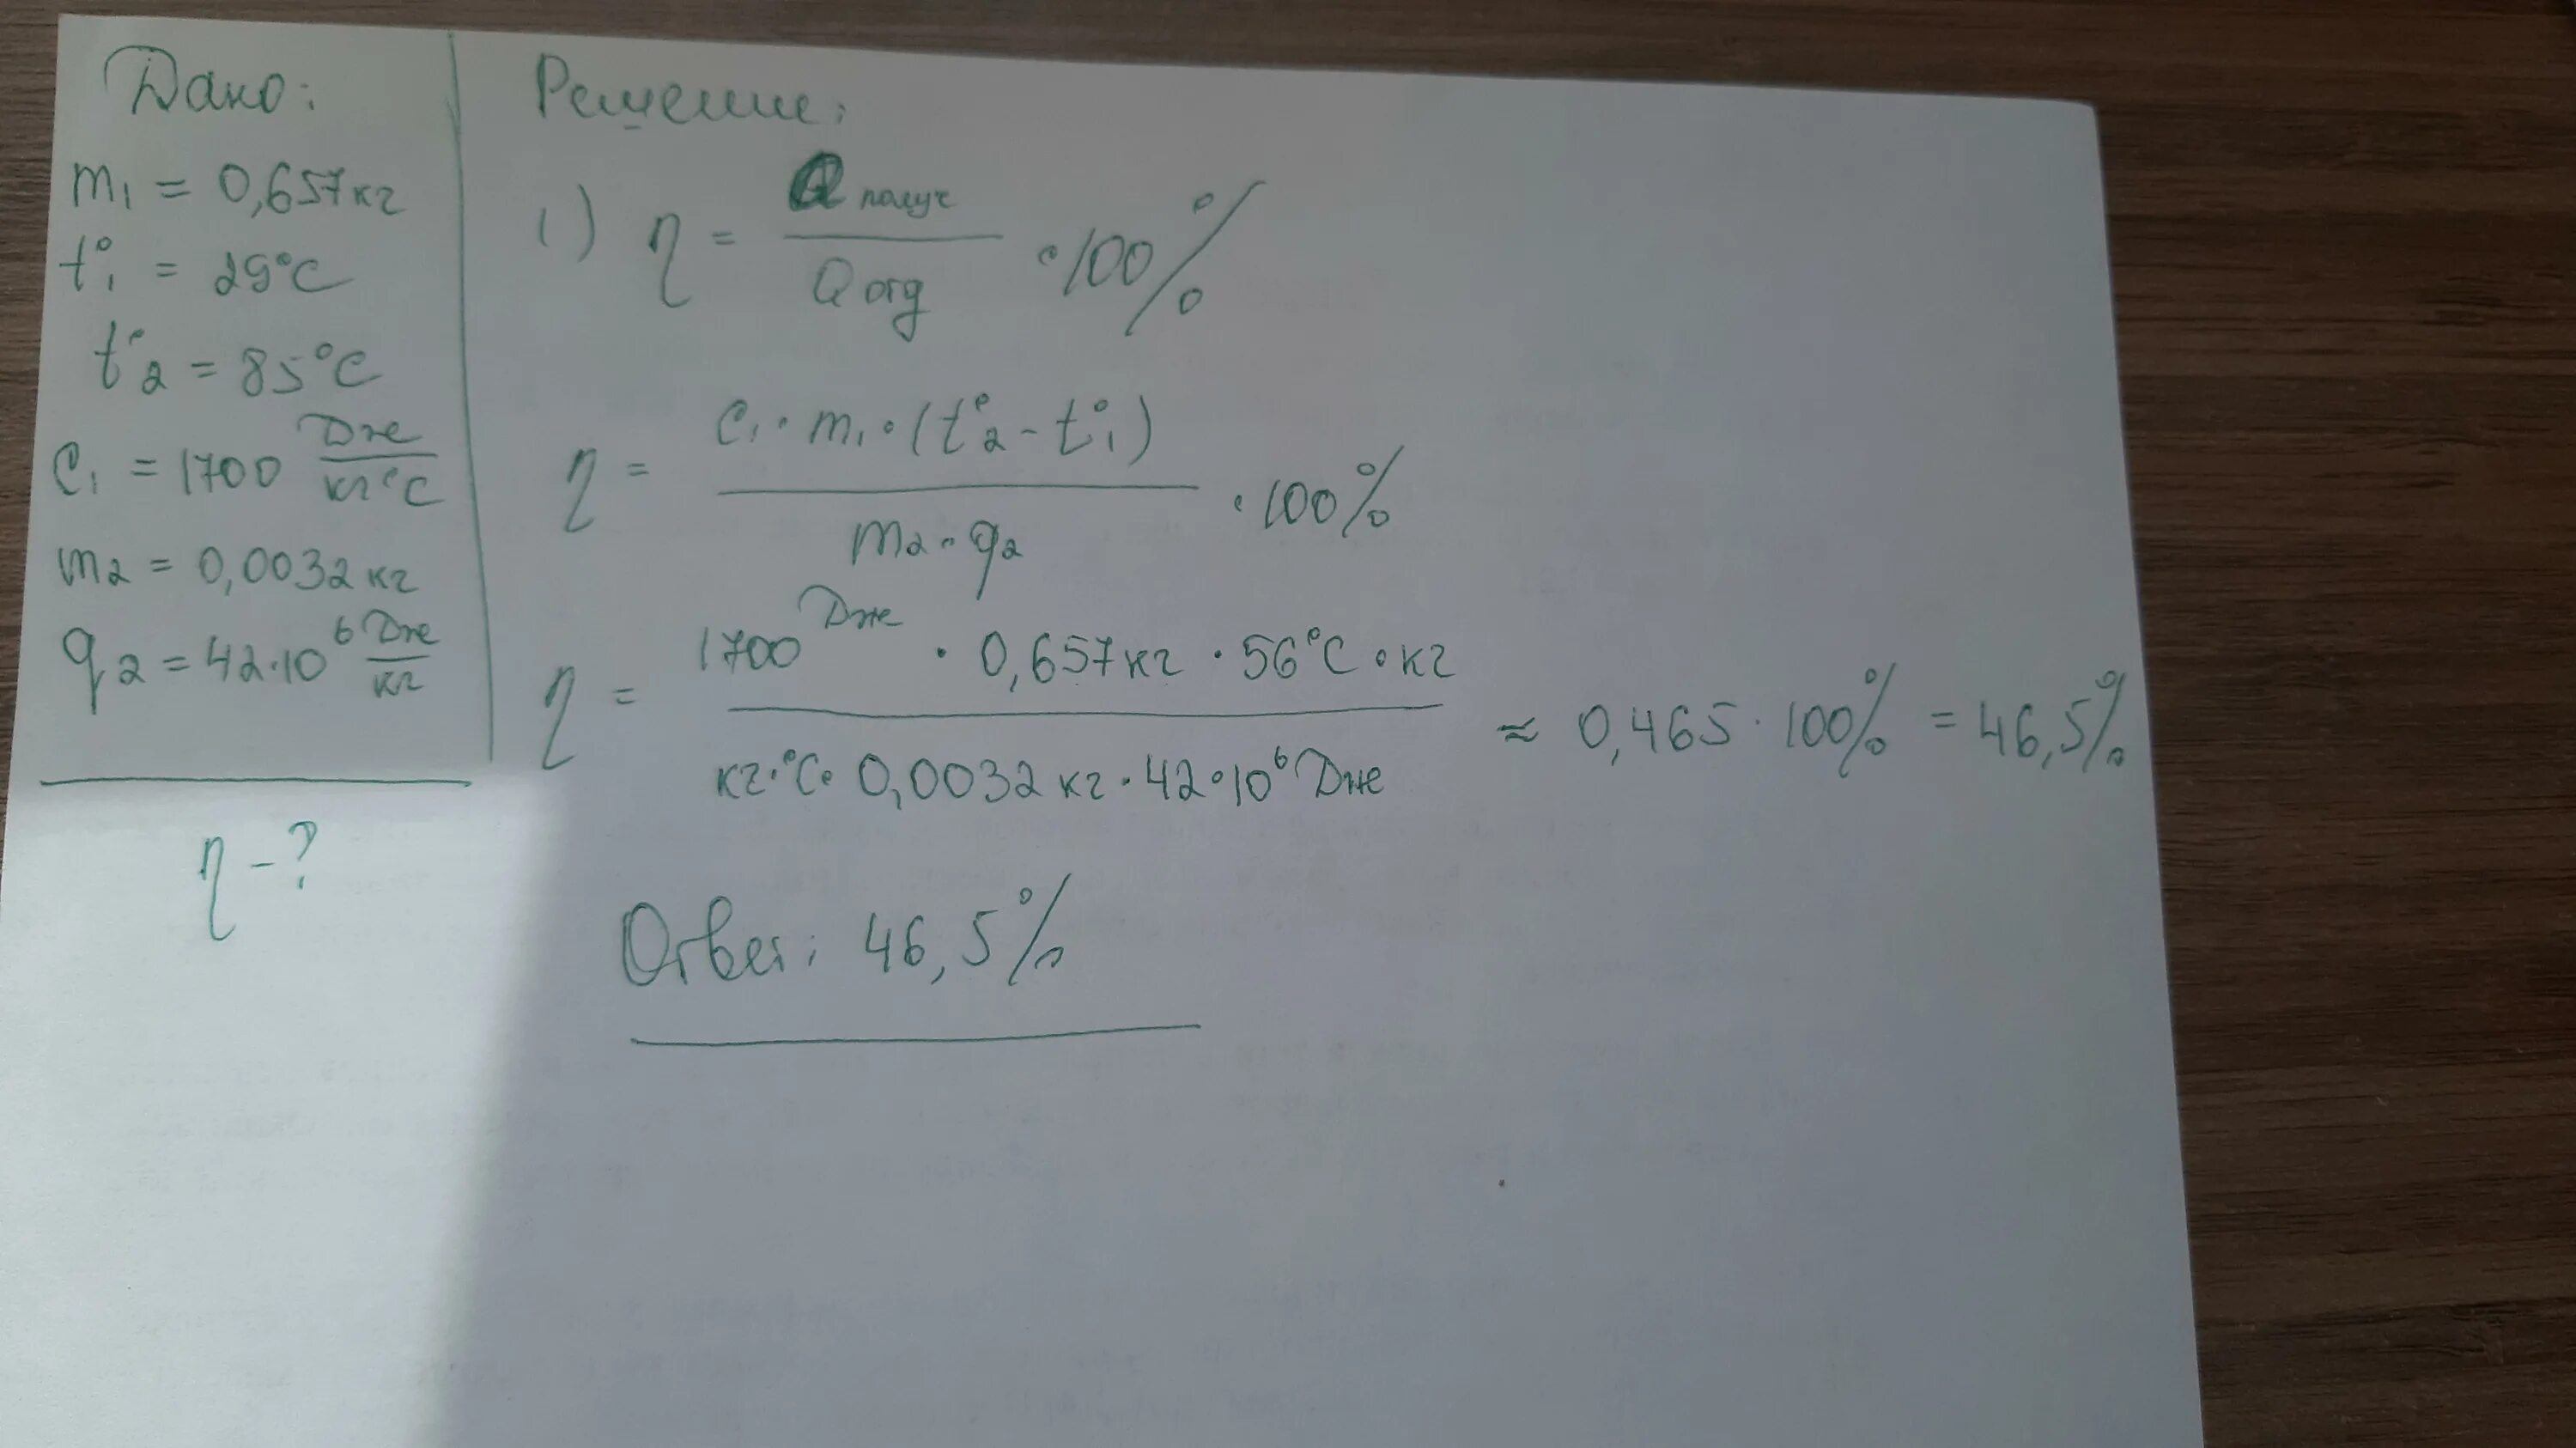 Дано:
m₁ = 0,657кг
t°₁ = 29°C
t°₂ = 85°C
C₁ = 1700 Дж/кг°C
m₂ = 0,0032кг
q₂ = 42·10⁶ Дж/кг
η - ?
Решение:
1) η = Qполуч / Qотд · 100%
η = C₁ · m₁ · (t°₂ - t°₁) / m₂ · q₂ · 100%
η = 1700 Дж · 0,657кг · 56°C · кг / кг · °C · 0,0032 кг · 42·10⁶ Дж ≈ 0,465 · 100% = 46,5%
Ответ: 46,5%